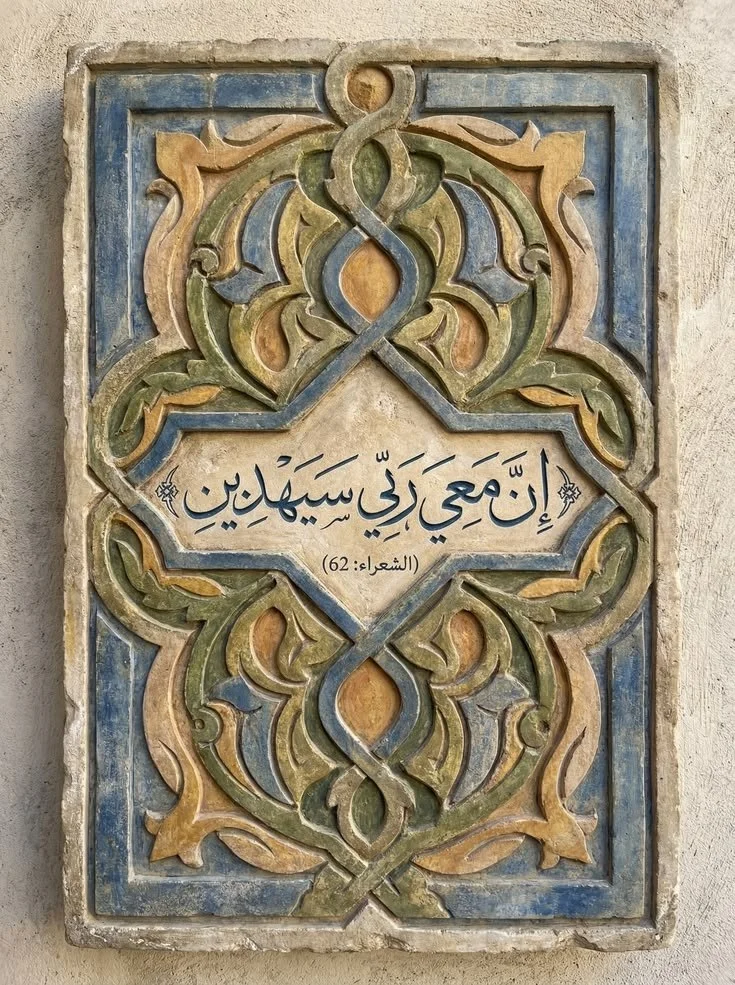 ﴿إِنَّ مَعِيَ رَبِّي سَيَهْدِينِ﴾
(الشعراء: 62)